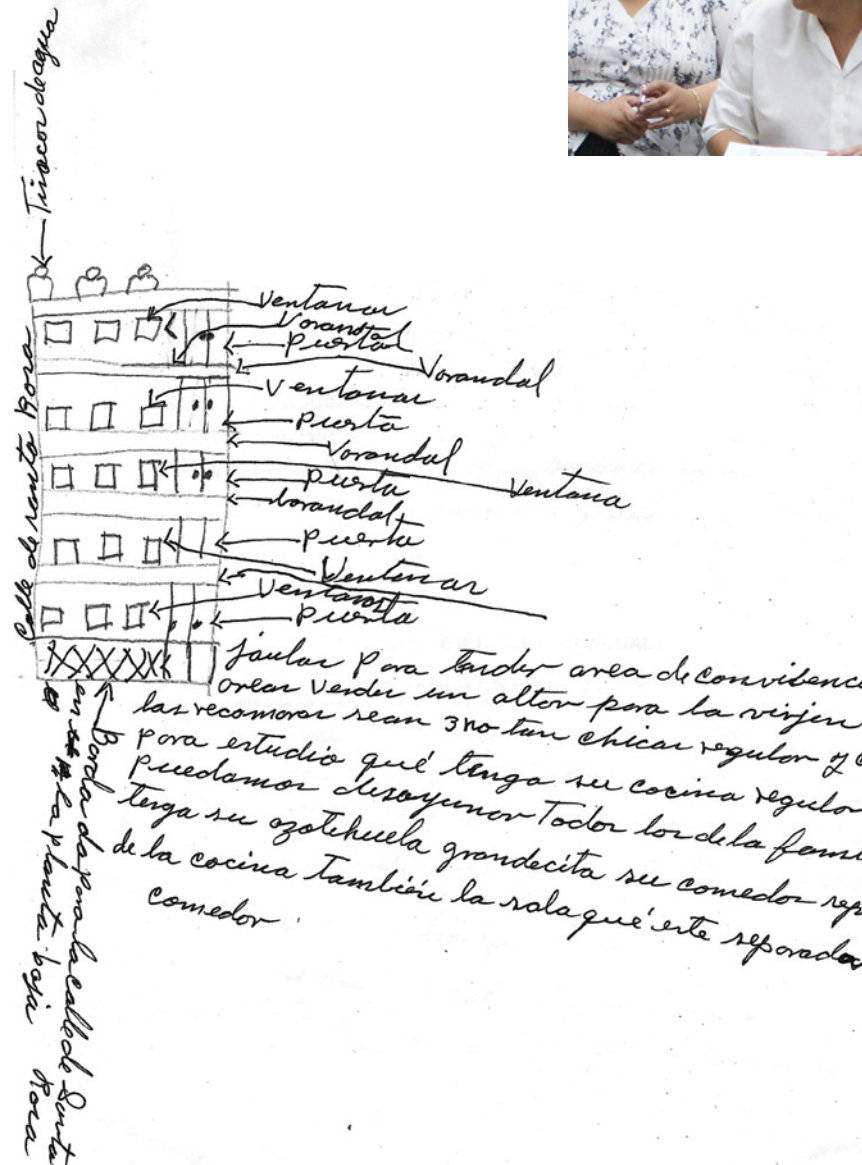 Tinacos de agua
Ventanas
Varandal
Puerta
Varandal
Ventanas
Puerta
Varandal
Puerta
Ventana
barandal
Puerta
Ventanas
Ventanas
Puerta
Calle de santa Rosa
jaulas Para tender area de convibenc
areas verdes un altar para la virjen
las recamaras sean 3 no tan chicas regular y
para estudio qué tenga su cocina regular
Puedamos desayunar Todos los de la fami
tenga su azotehuela grandecita su comedor sep
de la cocina También la sala qué este separada
comedor.
Barda da para la calle de Santa Rosa
en la planta baja